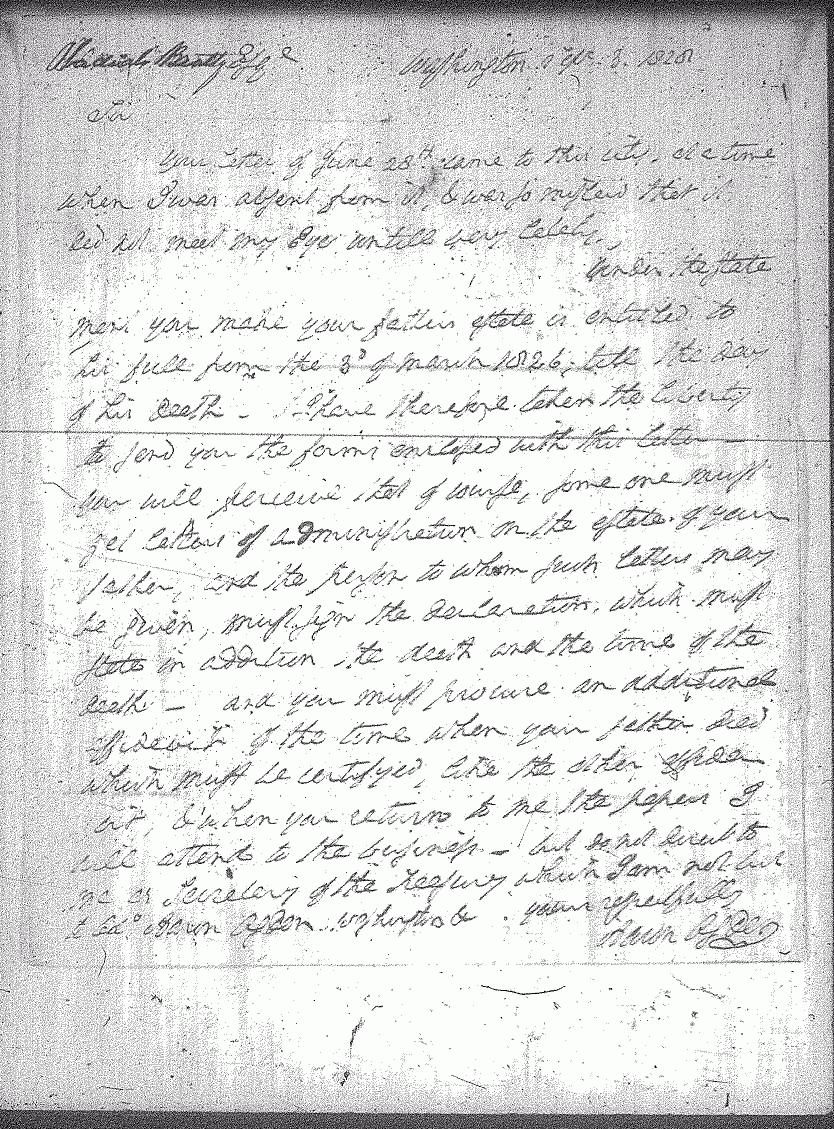 Washington Sept. 3. 1828
Sir
Your letter of June 28th came to this city, at a time
when I was absent from it, & was so mislaid that it
did not meet my Eye untill very lately,
Under the state
ment you make your fathers estate is entitled to
his full from the 3d of March 1826, till the day
of his death - I have therefore taken the liberty
to send you the forms enclosed with this letter -
You will perceive that of course, some one must
get letters of administration on the estate of your
father, and the person to whom such letters may
be given, must sign the declaration, which must
state in addition the death and the time of the
death - and you must procure an additional
affidavit of the time when your father died
which must be certifyed, like the other affida
vit, & when you return to me the papers I
will attend to the business - but do not direct to
me as Secretary of the Treasury which I am not but
to Col. Aaron Ogden Washington &c. yours respectfully
Aaron Ogden